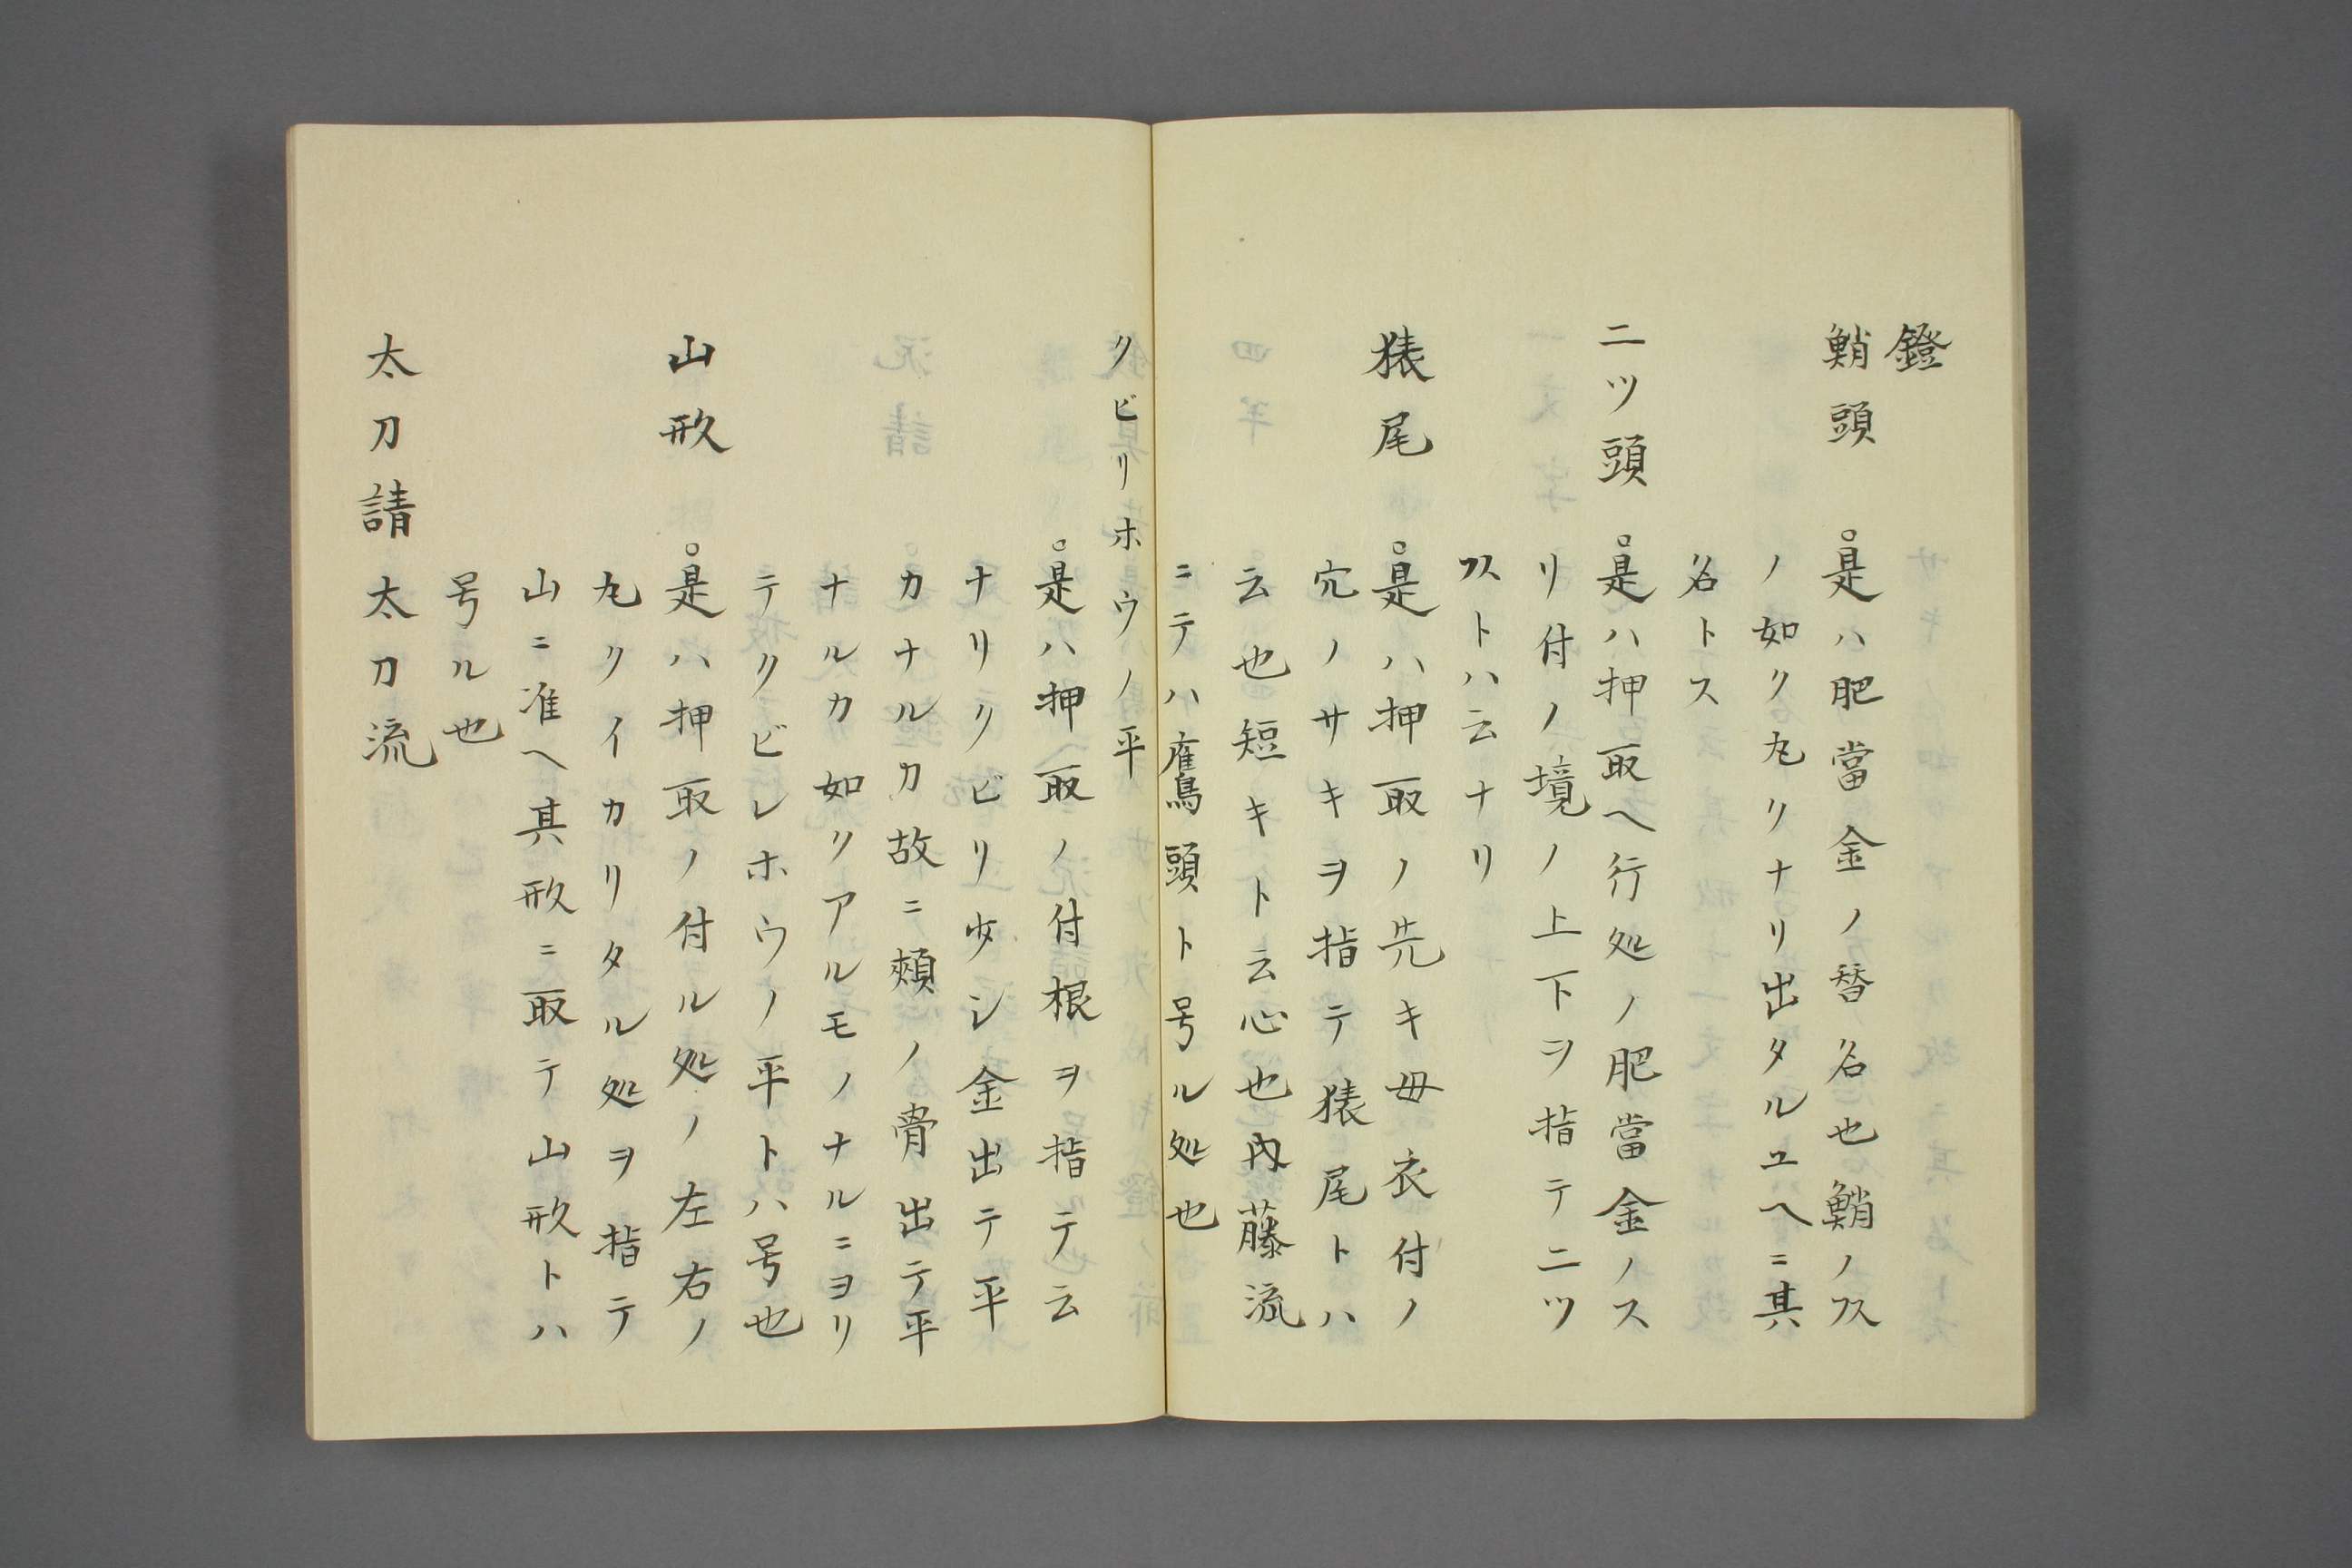 鐙
鮹頭
○是ハ肥當金ノ替名也鮹ノヌ
ノ如ク丸リナリ出タルユヘニ其
名トス
二ツ頭
○是ハ押取ヘ行処ノ肥當金ノス
リ付ノ境ノ上下ヲ指テ二ツ
ストハ云ナリ
猿尾
○是ハ押取ノ先キ毋衣付ノ
穴ノサキヲ指テ猿尾トハ
云也短キト云心也内藤流
ニテハ鷹頭ト号ル処也
クビリホウノ平
○是ハ押取ノ付根ヲ指テ云
ナリクビリ少シ金出テ平
カナルカ故ニ頬ノ骨出テ平
ナルカ如クアルモノナルニヨリ
テクビレホウノ平トハ号也
山形
○是ハ押取ノ付ル処ノ左右ノ
丸クイカリタル処ヲ指テ
山ニ准ヘ其形ニ取テ山形トハ
号ル也
太刀請太刀流